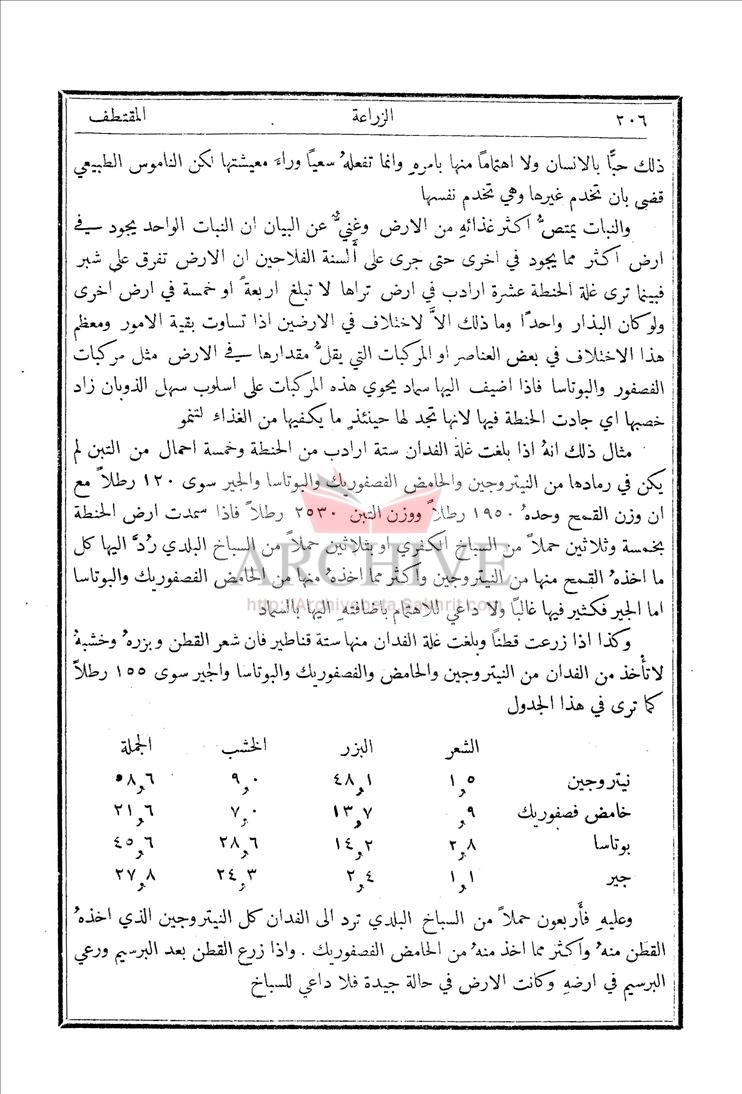 ٢٠٦ الزراعة المقتطف
ذلك حبًّا بالانسان ولا اهتمامًا منها بامرهِ وانما تفعلهُ سعيًا وراء معيشتها لكن الناموس الطبيعي
قضى بان تخدم غيرها وهي تخدم نفسها
والنبات يمتصُّ اكثر غذائهِ من الارض وغنيٌّ عن البيان ان النبات الواحد يجود في
ارض اكثر مما يجود في اخرى حتى جرى على أَلسنة الفلاحين ان الارض تفرق على شبر
فبينما ترى غلة الحنطة عشرة ارادب في ارض تراها لا تبلغ اربعةً او خمسة في ارض اخرى
ولو كان البذار واحدًا وما ذلك الاَّ لاختلاف في الارضين اذا تساوت بقية الامور ومعظم
هذا الاختلاف في بعض العناصر او المركبات التي يقلُّ مقدارها في الارض مثل مركبات
الفصفور والبوتاسا فاذا اضيف اليها سماد يحوي هذه المركبات على اسلوب سهل الذوبان زاد
خصبها اي جادت الحنطة فيها لانها تجد لها حينئذٍ ما يكفيها من الغذاء لتنمو
مثال ذلك انهُ اذا بلغت غلة الفدان ستة ارادب من الحنطة وخمسة احمال من التبن لم
يكن في رمادها من النيتروجين والحامض الفصفوريك والبوتاسا والجير سوى ١٢٠ رطلاً مع
ان وزن القمح وحدهُ ١٩٥٠ رطلاً ووزن التبن ٢٥٣٠ رطلاً فاذا سمدت ارض الحنطة
بخمسة وثلاثين حملاً من السباخ الكفري او بثلاثين حملاً من السباخ البلدي رُدَّ اليها كل
ما اخذهُ القمح منها من النيتروجين وأكثر مما اخذهُ منها من الحامض الفصفوريك والبوتاسا
اما الجير فكثير فيها غالبًا ولا داعي للاهتمام باضافتهِ اليها بالسماد
وكذا اذا زرعت قطنًا وبلغت غلة الفدان منها ستة قناطير فان شعر القطن وبزرهُ وخشبهُ
لا تأخذ من الفدان من النيتروجين والحامض والفصفوريك والبوتاسا والجير سوى ١٥٥ رطلاً
كما ترى في هذا الجدول
الشعر البزر الخشب الجملة
نيتروجين ١,٥ ٤٨,١ ٩,٠ ٥٨,٦
خامض فصفوريك ,٩ ١٣,٧ ٧,٠ ٢١,٦
بوتاسا ٢,٨ ١٤,٢ ٢٨,٦ ٤٥,٦
جير ١,١ ٢,٤ ٢٤,٣ ٢٧,٨
وعليهِ فأَربعون حملاً من السباخ البلدي ترد الى الفدان كل النيتروجين الذي اخذهُ
القطن منهُ وأكثر مما اخذ منهُ من الحامض الفصفوريك . واذا زرع القطن بعد البرسيم ورعي
البرسيم في ارضهِ وكانت الارض في حالة جيدة فلا داعي للسباخ
ARCHIVE
http://Archivebeta.Sakhrit.com